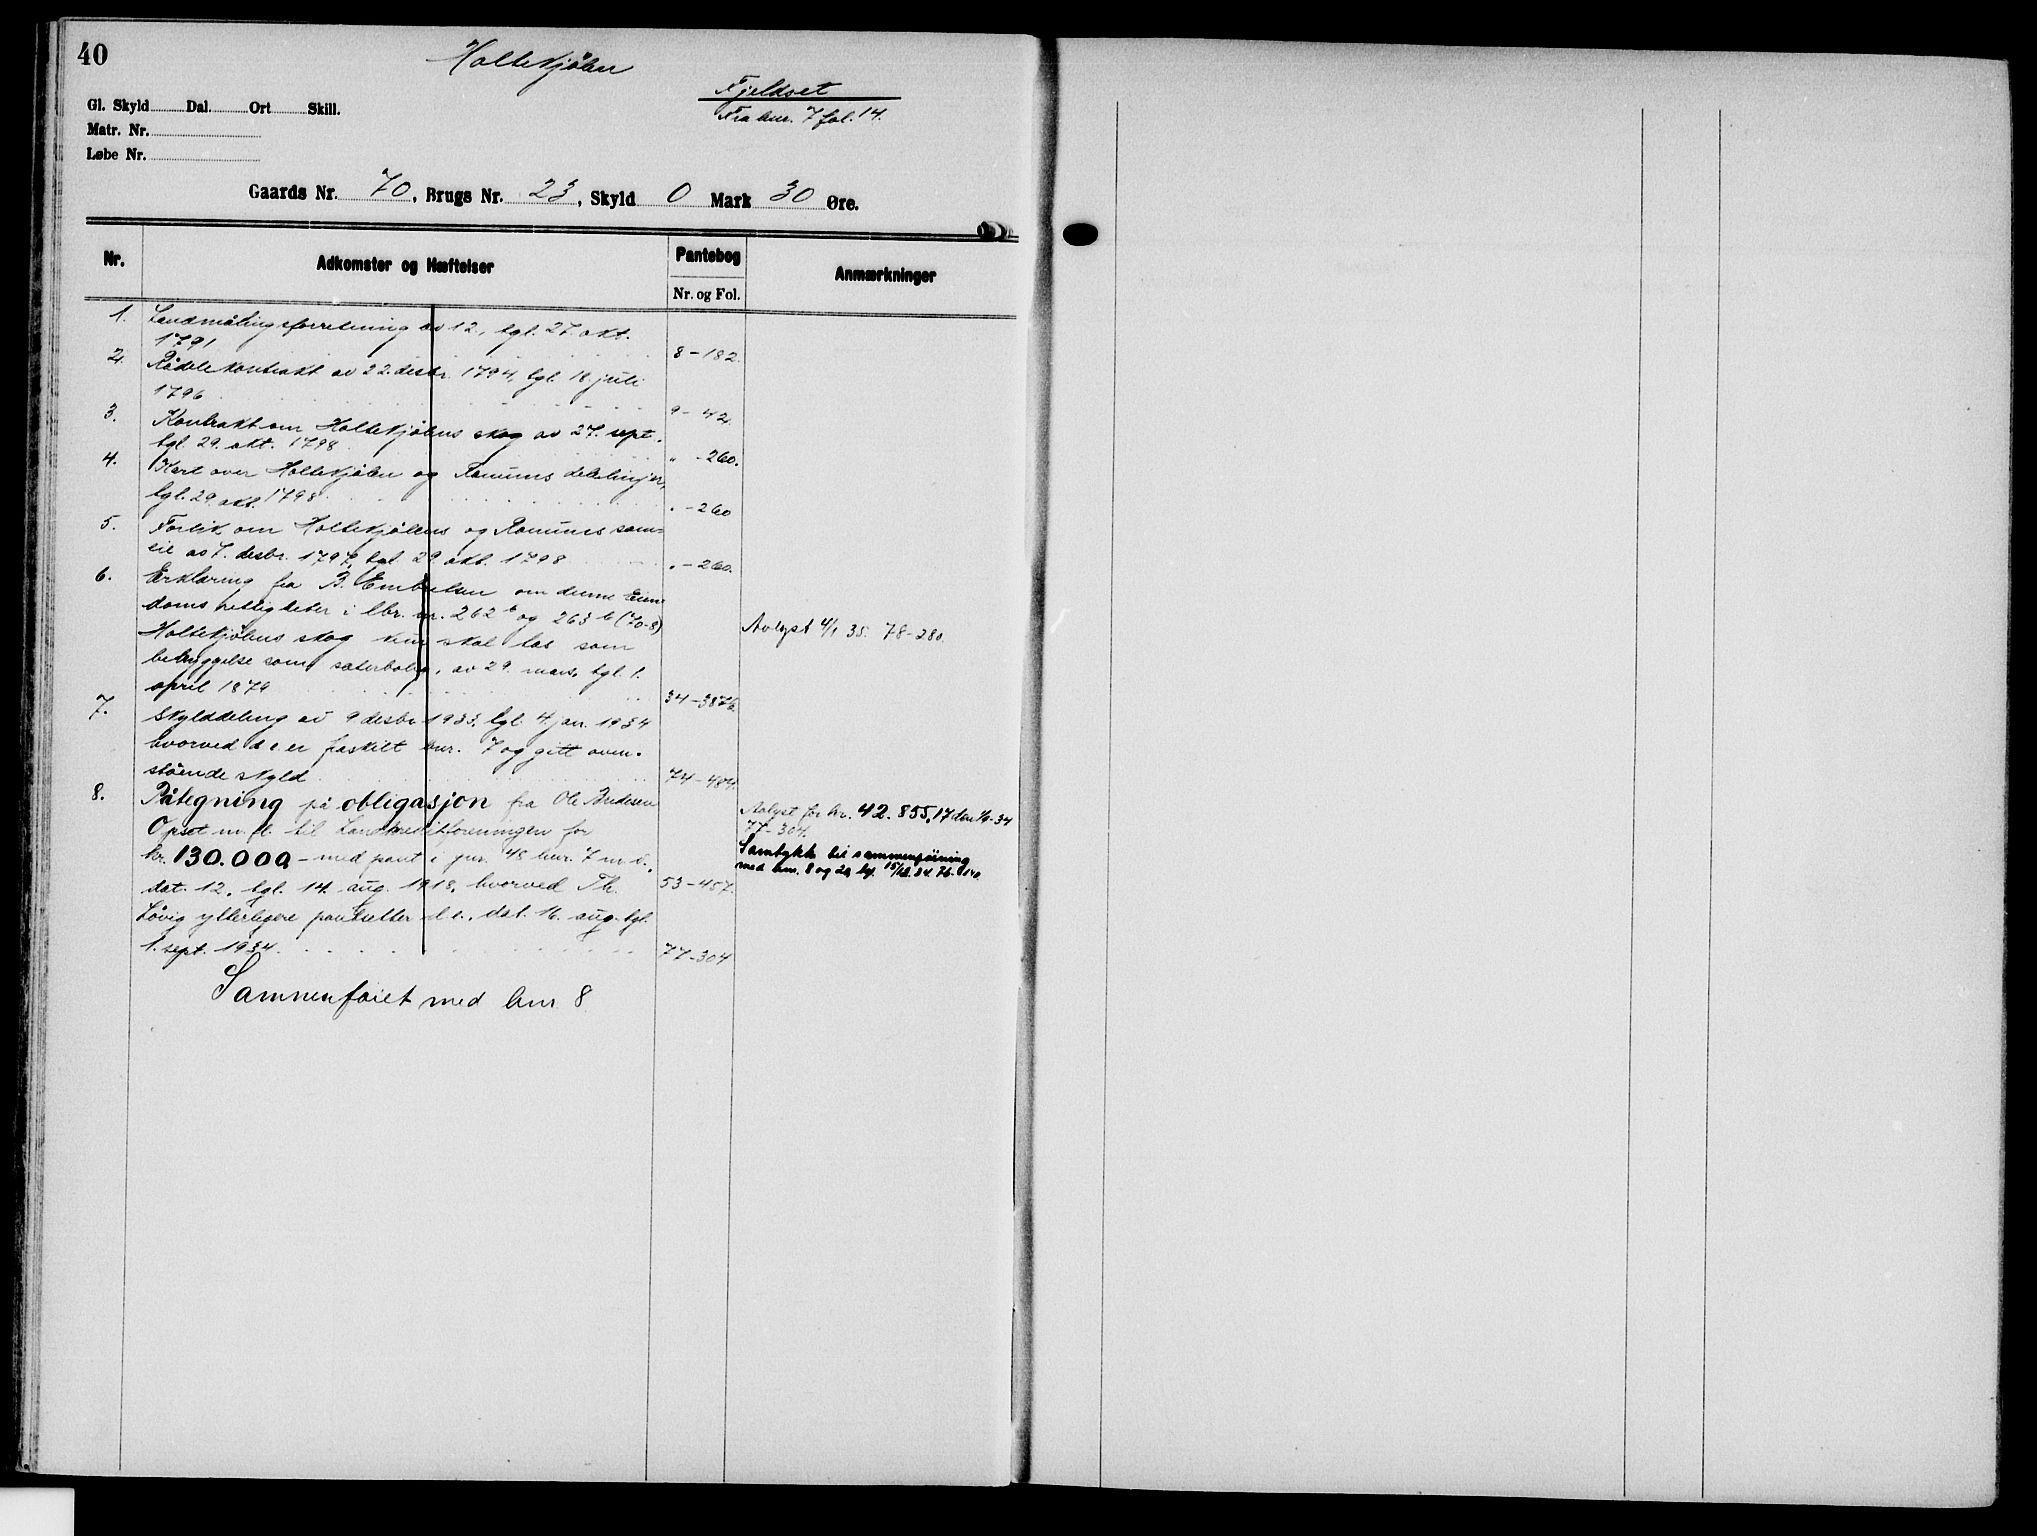 40
Holtekjølen
Fjeldset
Fra bnr. 7 fol. 14.
Gl. Skyld Dal. Ort Skill.
Matr. Nr.
Løbe Nr.
Gaards Nr. 70, Brugs Nr. 23, Skyld 0 Mark 30 Øre.
Nr. Adkomster og Hæftelser Pantebog Anmærkninger
Nr. og Fol.
1. Landmålingsforretning av 12, tgl. 27. okt.
1791 8 - 182.
2. kontrakt av 22. desbr. 1794, tgl. 18. juli
1796 9 - 42.
3. Kontrakt om Holtekjølens skog av 27. sept.
tgl. 29. okt. 1798 " - 260.
4. Kart over Holtekjølen og Romuns delelinjer,
tgl. 29. okt. 1798 " - 260
5. Forlik om Holtekjølens og Romuns sam-
eie av 7. desbr. 1797, tgl. 29. okt. 1798 " - 260.
6. Erklæring fra B. Embretsen om denne Eien-
doms rettigheter i lbr. nr. 262 b og 263 b (70-8)
Holtekjølens skog kun skal tas som
bebyggelse som sæterbolig, av 29. mars, tgl. 1.
april 1879 34 - 387b.
Avlyst 4/1 35. 78 - 280.
7. Skylddeling av 9 desbr 1933, tgl. 4. jan. 1934
hvorved d.e. er fraskilt bnr. 7 og gitt oven-
stående skyld 74 - 484.
8. Påtegning på obligasjon fra Ole Bredesen
Opset m. fl. til Landkredittforeningen for
kr. 130.000 - med pant i gnr. 48 bnr. 7 m. v.
dat. 12, tgl. 14. aug. 1918, hvorved Th. 53 - 457.
Løvig ytterligere pantsetter d.e., dat. 16. aug. tgl.
1. sept. 1934. 77 - 304
Avlyst for kr. 42.855,17 den 1/9-34
77 - 304.
Samtykke til sammenføining
med bnr. 8 og 20 tgl. 15/12. 34. 76 - 140
Sammenføiet med bnr 8